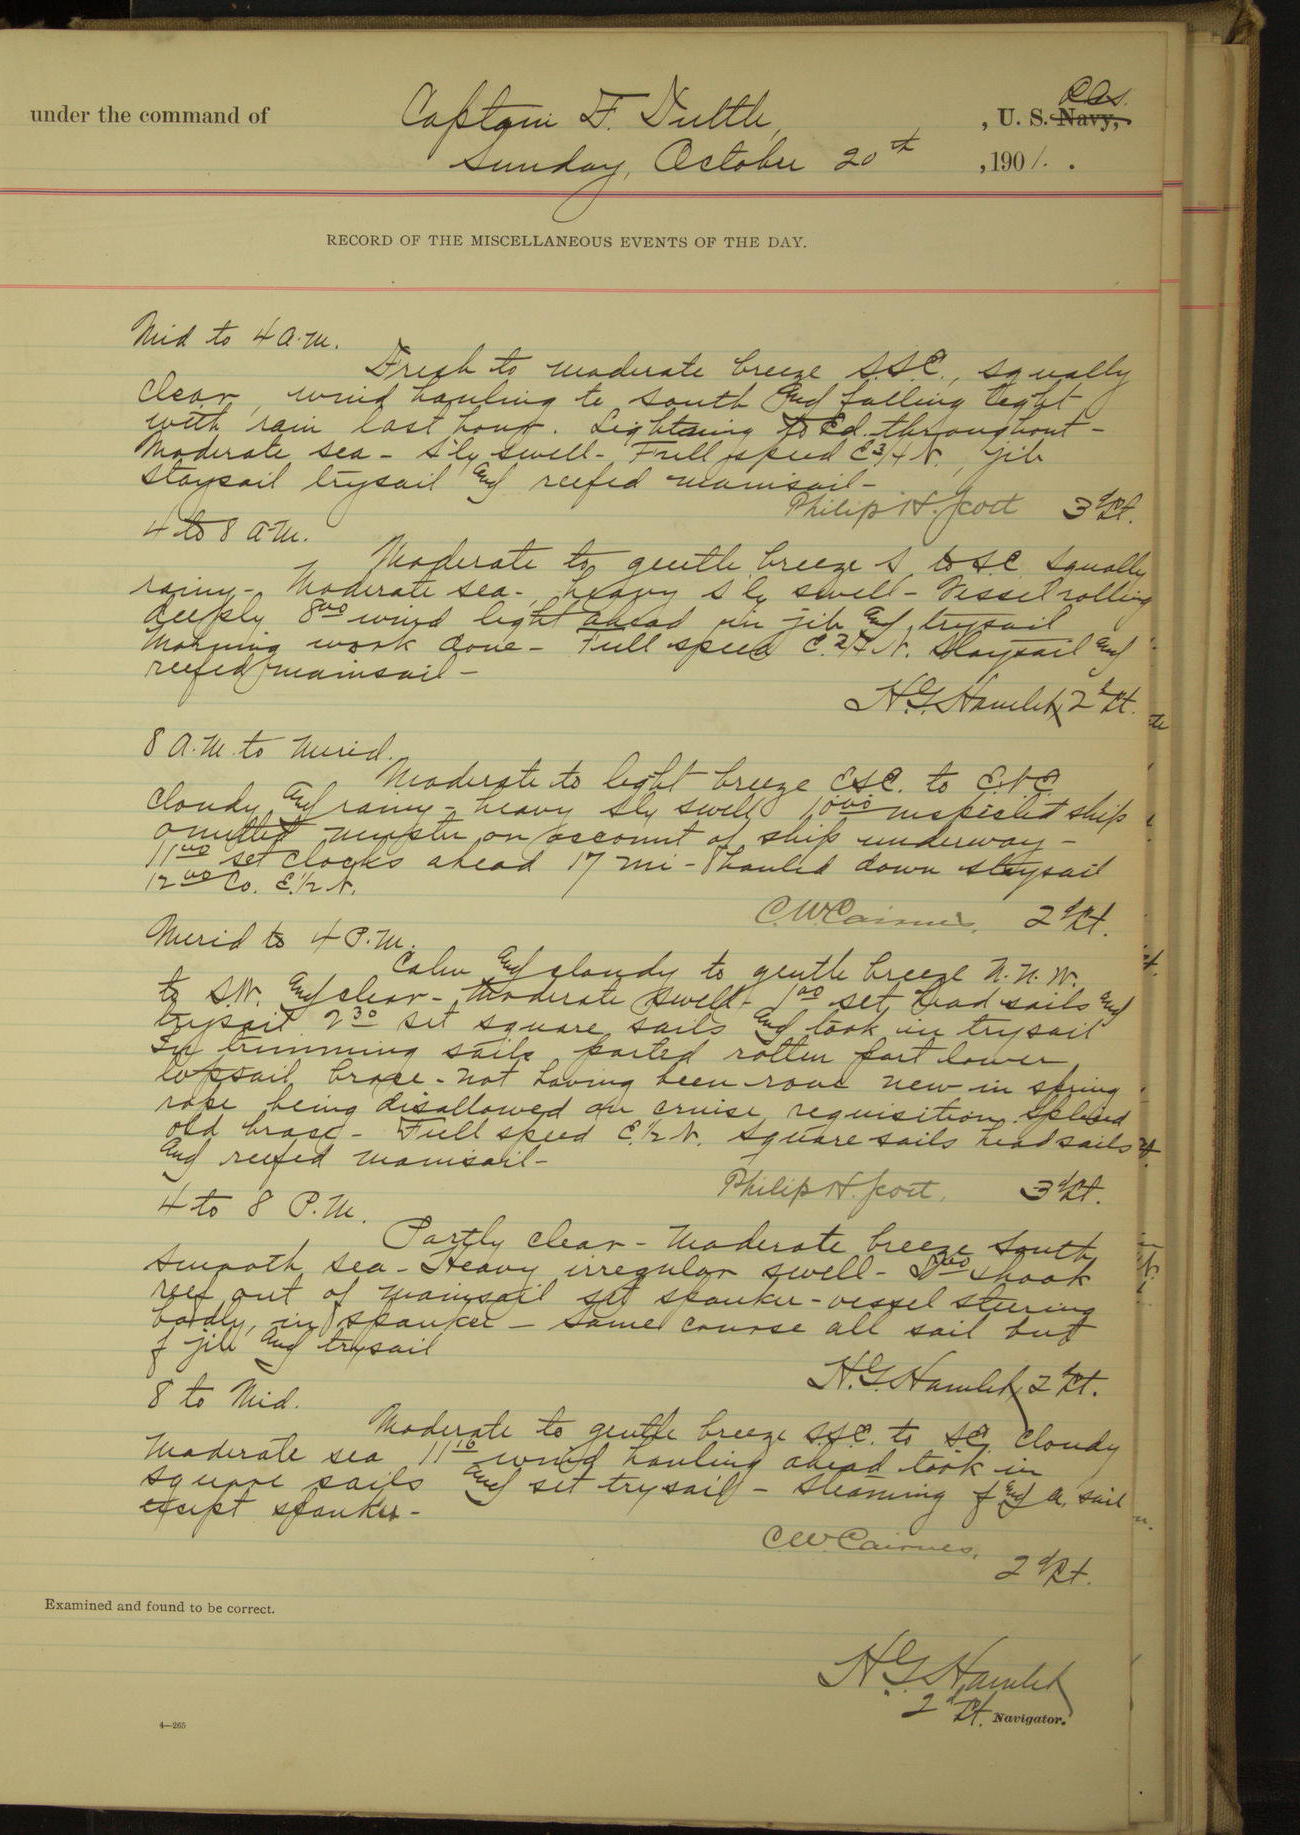 under the command of Captain F. Tuttle, , U. S. Navy, R.C.S.
Sunday, October 20th , 1901.
RECORD OF THE MISCELLANEOUS EVENTS OF THE DAY.
Mid to 4 a.m.
Fresh to moderate breeze S.S.E., squally
clear, wind hauling to South and falling light
with rain last hour. Lightning to Ed. throughout -
Moderate sea - S'ly swell - Full speed E 3/4 N., jib
staysail trysail and reefed mainsail -
Philip H. Scott 3d Lt.
4 to 8 a.m.
Moderate to gentle breeze S to S.E. squally
rainy - Moderate sea -, heavy S'ly swell - Vessel rolling
deeply 8 00 wind light ahead in jib and trysail
Morning work done - Full speed E. 3/4 N. Staysail and
reefed mainsail -
H.G. Hamlet 2d Lt.
8 A.M. to Merid.
Moderate to light breeze E.S.E. to E.N.E.
cloudy and rainy - heavy S'ly swell 10 00 inspected ship
omitted muster on account of ship underway -
11 00 set clocks ahead 17 mi - hauled down staysail
12 00 Co. E. 1/2 N.
C.W. Cairnes, 2d Lt.
Merid to 4 P.M.
Calm and cloudy to gentle breeze N.N.W.
to S.W. and clear - Moderate swell - 1 00 set head sails and
trysail 2 30 set square sails and took in trysail
In trimming sails parted rotten port lower
topsail brace - not having been rove new in spring
rope being disallowed on cruise requisition. Spliced
old brace - Full speed E. 1/2 N. square sails head sails
and reefed mainsail -
Philip H. Scott. 3d Lt.
4 to 8 P.M.
Partly clear - Moderate breeze South
smooth sea - Heavy irregular swell - shook
reef out of mainsail set spanker - vessel steering
badly, in spanker - same course all sail but
f jib and trysail
H.G. Hamlet 2d Lt.
8 to Mid.
Moderate to gentle breeze S.S.E. to S.E. Cloudy
Moderate sea 11 10 wind hauling ahead took in
square sails and set trysail - Steaming f and a. sail
except spanker -
C.W. Cairnes, 2d Lt.
Examined and found to be correct.
H.G. Hamlet
2d Lt. Navigator.
4—265